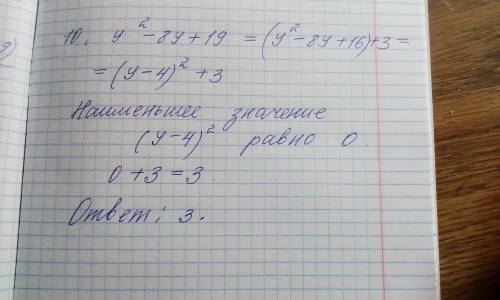 10. y² - 8y + 19 = (y² - 8y + 16) + 3 =
= (y - 4)² + 3
Наименьшее значение
(y - 4)² равно 0.
0 + 3 = 3.
Ответ: 3.